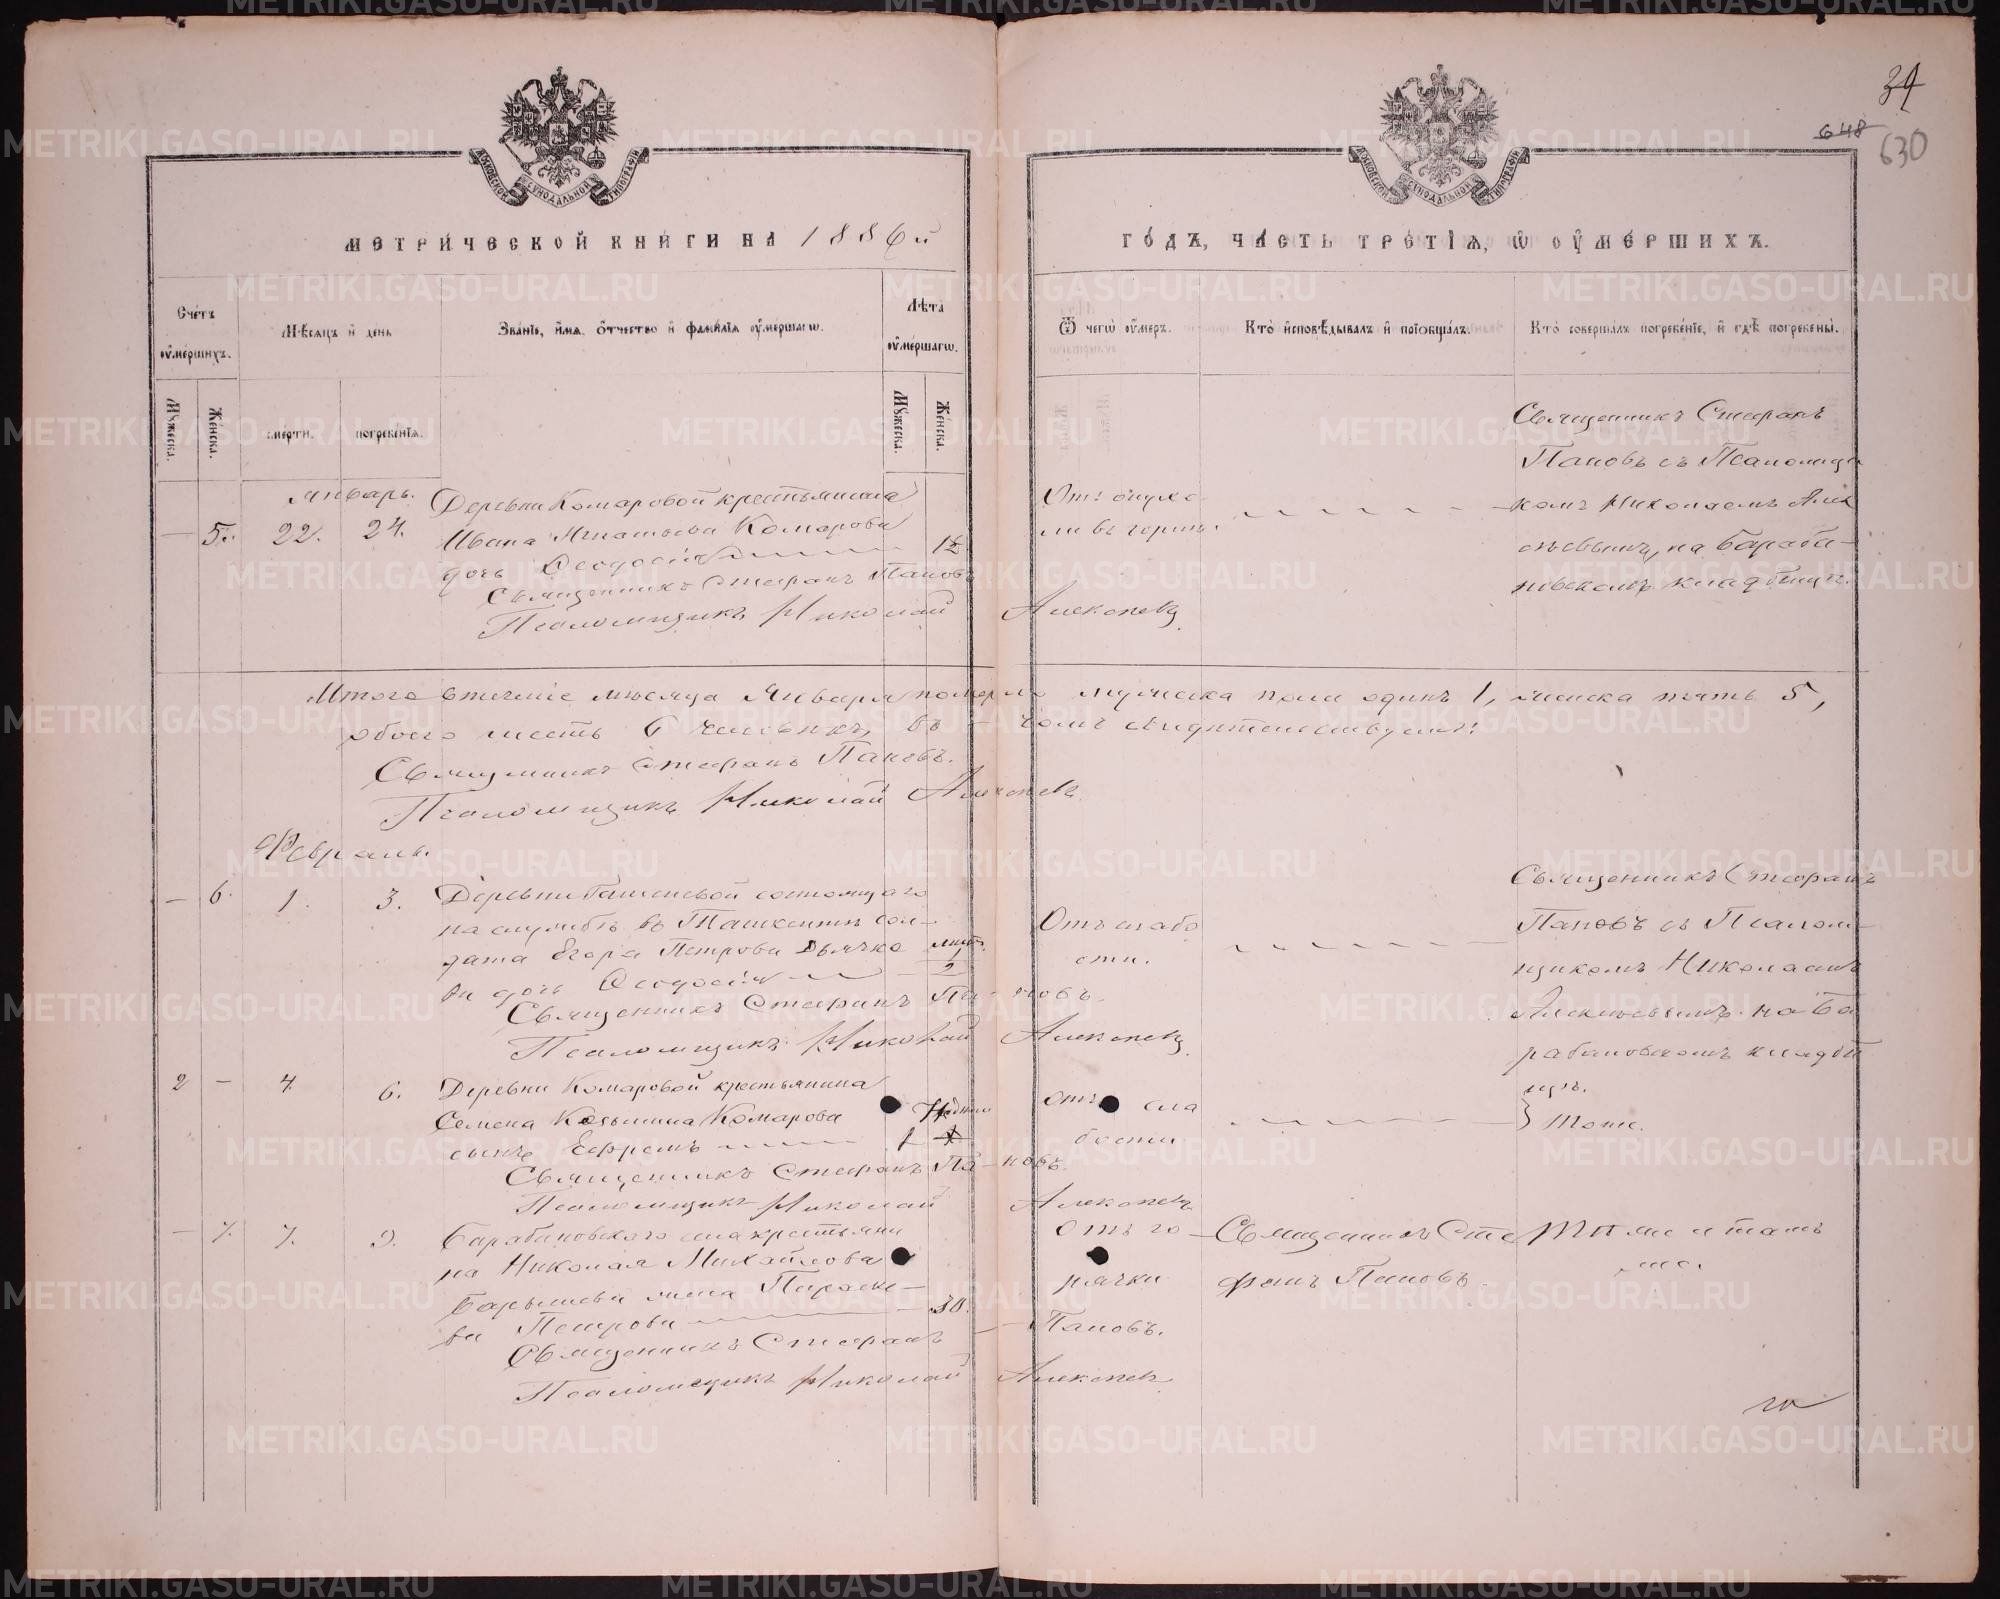 МОСКОВСКОЙ СѴНОДАЛЬНОЙ ТИПОГРАФІИ
МОСКОВСКОЙ СѴНОДАЛЬНОЙ ТИПОГРАФІИ
34
648
630
МЕТРИ́ЧЕСКОЙ КНИ́ГИ НА 1886й
ГО́ДЪ, ЧА́СТЬ ТРЕ́ТІѦ, Ѽ ОУ҆МЕ́РШИХЪ.
Сче́тъ оу҆ме́ршихъ.
Мѣ́сяцъ и҆ де́нь
Зва́ніе, и҆́мя, ѻ҆́тчество и҆ фами́лія оу҆ме́ршагѡ.
Лѣ́та оу҆ме́ршагѡ.
Ѿ чегѡ̀ оу҆́меръ.
Кто̀ и҆сповѣ́дывалъ и҆ прїѡбща́лъ.
Кто̀ соверша́лъ погребе́ніе, и҆ гдѣ̀ погребены̀.
Мꙋ́жеска.
Же́нска.
сме́рти.
погребе́нія.
Мꙋ́жеска.
Же́нска.
Январь.
— 5. 22. 24.
Деревни Комаровой крестьянина
Ивана Игнатьева Комарова
дочь Ѳеодосія
Священникъ Стефанъ Пановъ
Псаломщикъ Николай Алексѣевъ
Отъ опухо
ли въ горлѣ.
Священникъ Стефанъ
Пановъ съ Псаломщи
комъ Николаемъ Алек
сѣевымъ, на Бараба-
новскомъ кладбищѣ.
Итого втеченіе мѣсяца Января померло мужеска пола одинъ 1, женска пять 5,
обоего шесть 6 человѣкъ, въ — чемъ свидѣтельствуемъ:
Священникъ Стефанъ Пановъ.
Псаломщикъ Николай Алексѣевъ
Февраль.
— 6. 1. 3.
Деревни состоящаго
на службѣ въ Ташкентѣ сол-
дата Егора Петрова Дьячко
ва дочь Ѳеодосія
Священникъ Стефанъ Па-новъ.
Псаломщикъ Николай Алексѣевъ
Отъ слабо
сти.
Священникъ Стефанъ
Пановъ съ Псалом-
щикомъ Николаемъ
Алексѣевымъ на Ба
рабановскомъ кладби
щѣ.
2 — 4. 6.
Деревни Комаровой крестьянина
Семена Козьмина Комарова
сынъ Ефремъ
Священникъ Стефанъ Па-новъ.
Псаломщикъ Николай Алексѣевъ
Отъ сла
бости
} Тоже.
— 7. 7. 9.
Барабановскаго села крестьяни
на Николая Михайлова
Барышева жена Параске-
ва Петрова 30.
Священникъ Стефанъ — Пановъ.
Псаломщикъ Николай Алексѣевъ
Отъ го
рячки
Священникъ Сте
фанъ Пановъ.
Тѣ же и тамъ
же.
METRIKI.GASO-URAL.RU